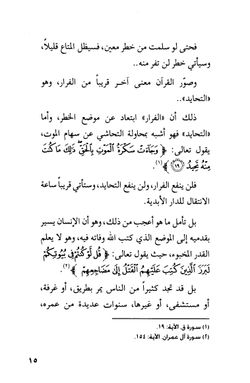 فحتى لو سلمت من خطر معين، فسيظل المتاع قليلاً،
وسيأتي خطر لن تفر منه..
وصوّر القرآن معنى آخر قريباً من الفرار، وهو
«التحايد»..
ذلك أن «الفرار» ابتعاد عن موضع الخطر، وأما
«التحايد» فهو أشبه بمحاولة التحاشي عن سهام الموت،
يقول تعالى: ﴿ وَجَاءَتْ سَكْرَةُ الْمَوْتِ بِالْحَقِّ ذَلِكَ مَا كُنْتَ
مِنْهُ تَحِيدُ ﴿١٩﴾ ﴾(١).
فلن ينفع الفرار، ولن ينفع التحايد، وستأتي قريباً ساعة
الانتقال للدار الأبدية.
بل تأمل ما هو أعجب من ذلك، وهو أن الإنسان يسير
بقدميه إلى الموضع الذي كتب الله وفاته فيه، وهو لا يعلم
القدر المخبوء، حيث يقول تعالى: ﴿ قُلْ لَوْ كُنْتُمْ فِي بُيُوتِكُمْ
لَبَرَزَ الَّذِينَ كُتِبَ عَلَيْهِمُ الْقَتْلُ إِلَى مَضَاجِعِهِمْ ﴾(٢).
بل قد تجد كثيراً من الناس يمر بطريق، أو غرفة،
أو مستشفى، أو غيرها، سنوات عديدة من عمره،
(١) سورة ق الآية: ١٩.
(٢) سورة آل عمران الآية: ١٥٤.
١٥